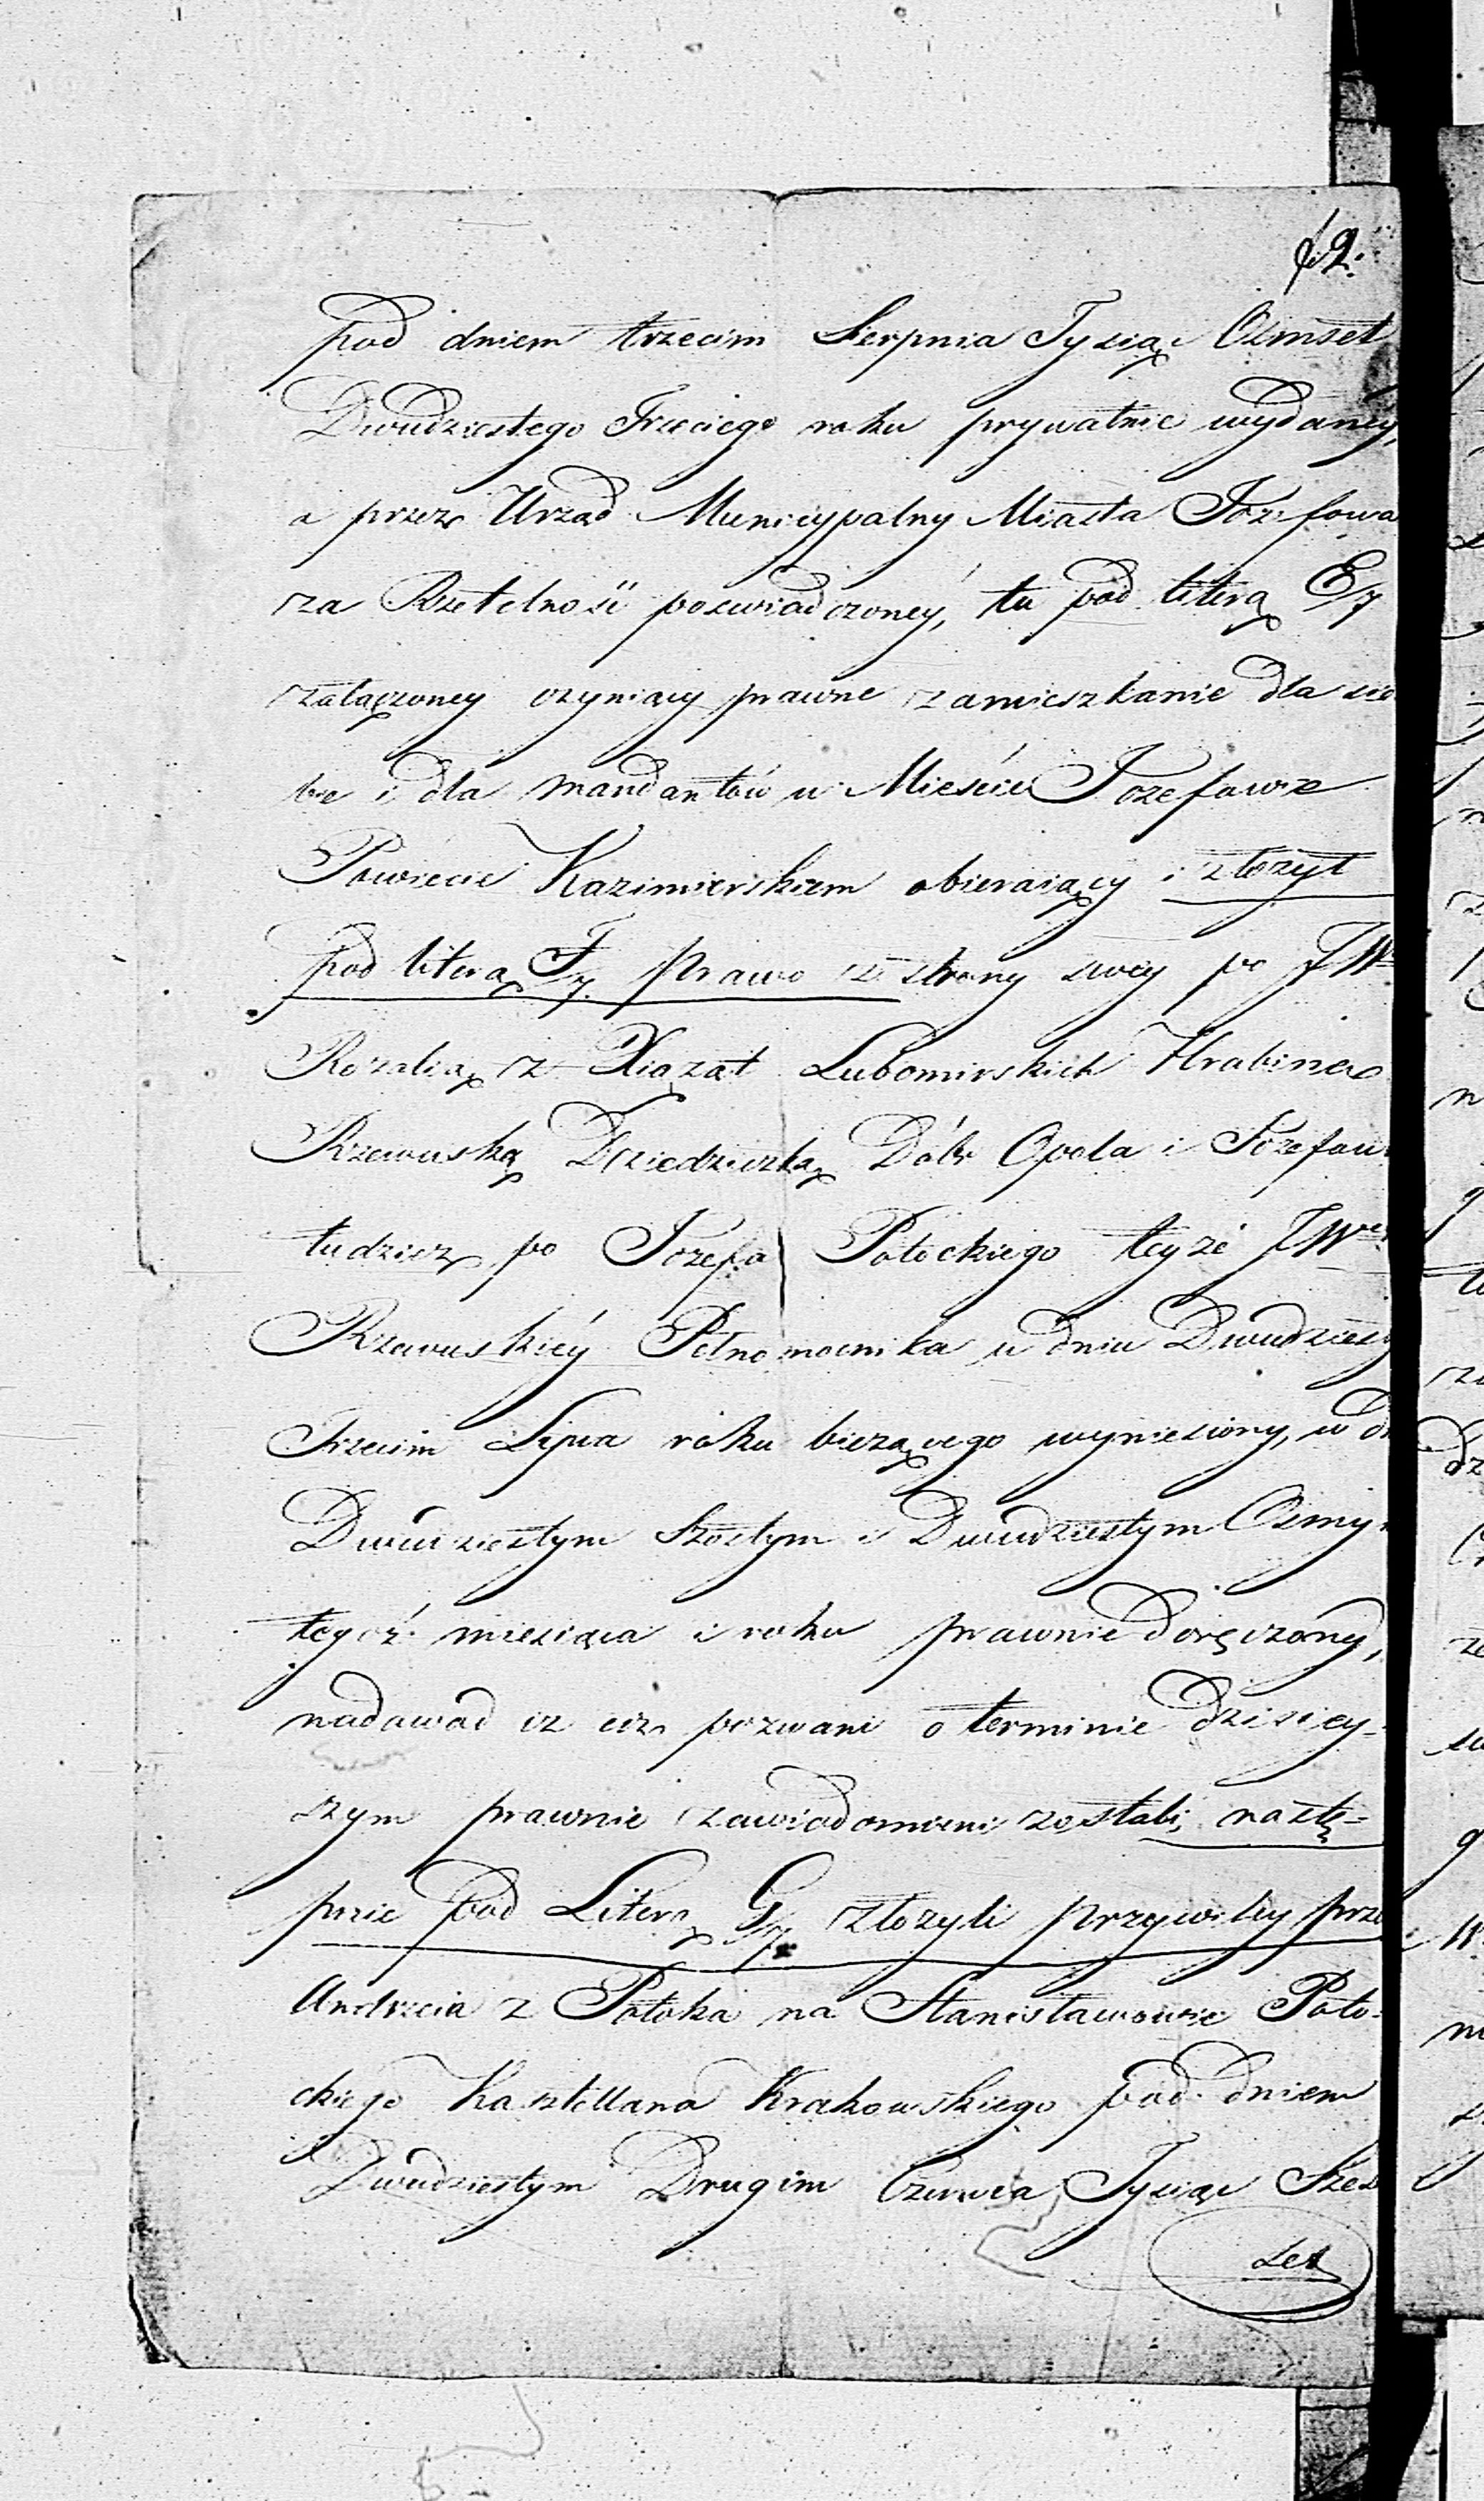 f. 2.
pod dniem trzecim Sierpnia Tysiąc Osmset
Dwudziestego Trzeciego roku prywatnie wydaney,
a przez Urząd Municypalny Miasta Józefowa
za Rzetelność poświadczoney, tu pod literą E/7
załączoney czyniący prawne zamieszkanie dla sie
bie i dla mandantów w Mieście Jozefowie
Powiecie Kazimierskiem obieraiący i złożył
pod literą F/7. prawo ze strony swey po JW
Rozalią z Xiążąt Lubomirskich Hrabinę
Rzewuską Dziedziczką Dóbr Opola i Jozefow
tudzież po Jozefa Potockiego teyże JW
Rzewuskiéy Pełnomocnika w dniu Dwudziest
Trzecim Lipca roku bieżącego wyniesiony, w d
Dwudziestym Szostym i Dwudziestym Osmy
tegoż miesiąca i roku prawnie doręczony,
nadawad iż ciż pozwani o terminie dzisiey-
szym prawnie zawiadomieni zostali; nastę=
pnie pod Literą G/7 złożyli przywiley prze
Andrzeia z Potoka na Stanisławowie Poto=
ckiego Kasztellana Krakowskiego pod dniem
Dwudziestym Drugim Czerwca Tysiąc Szes
set